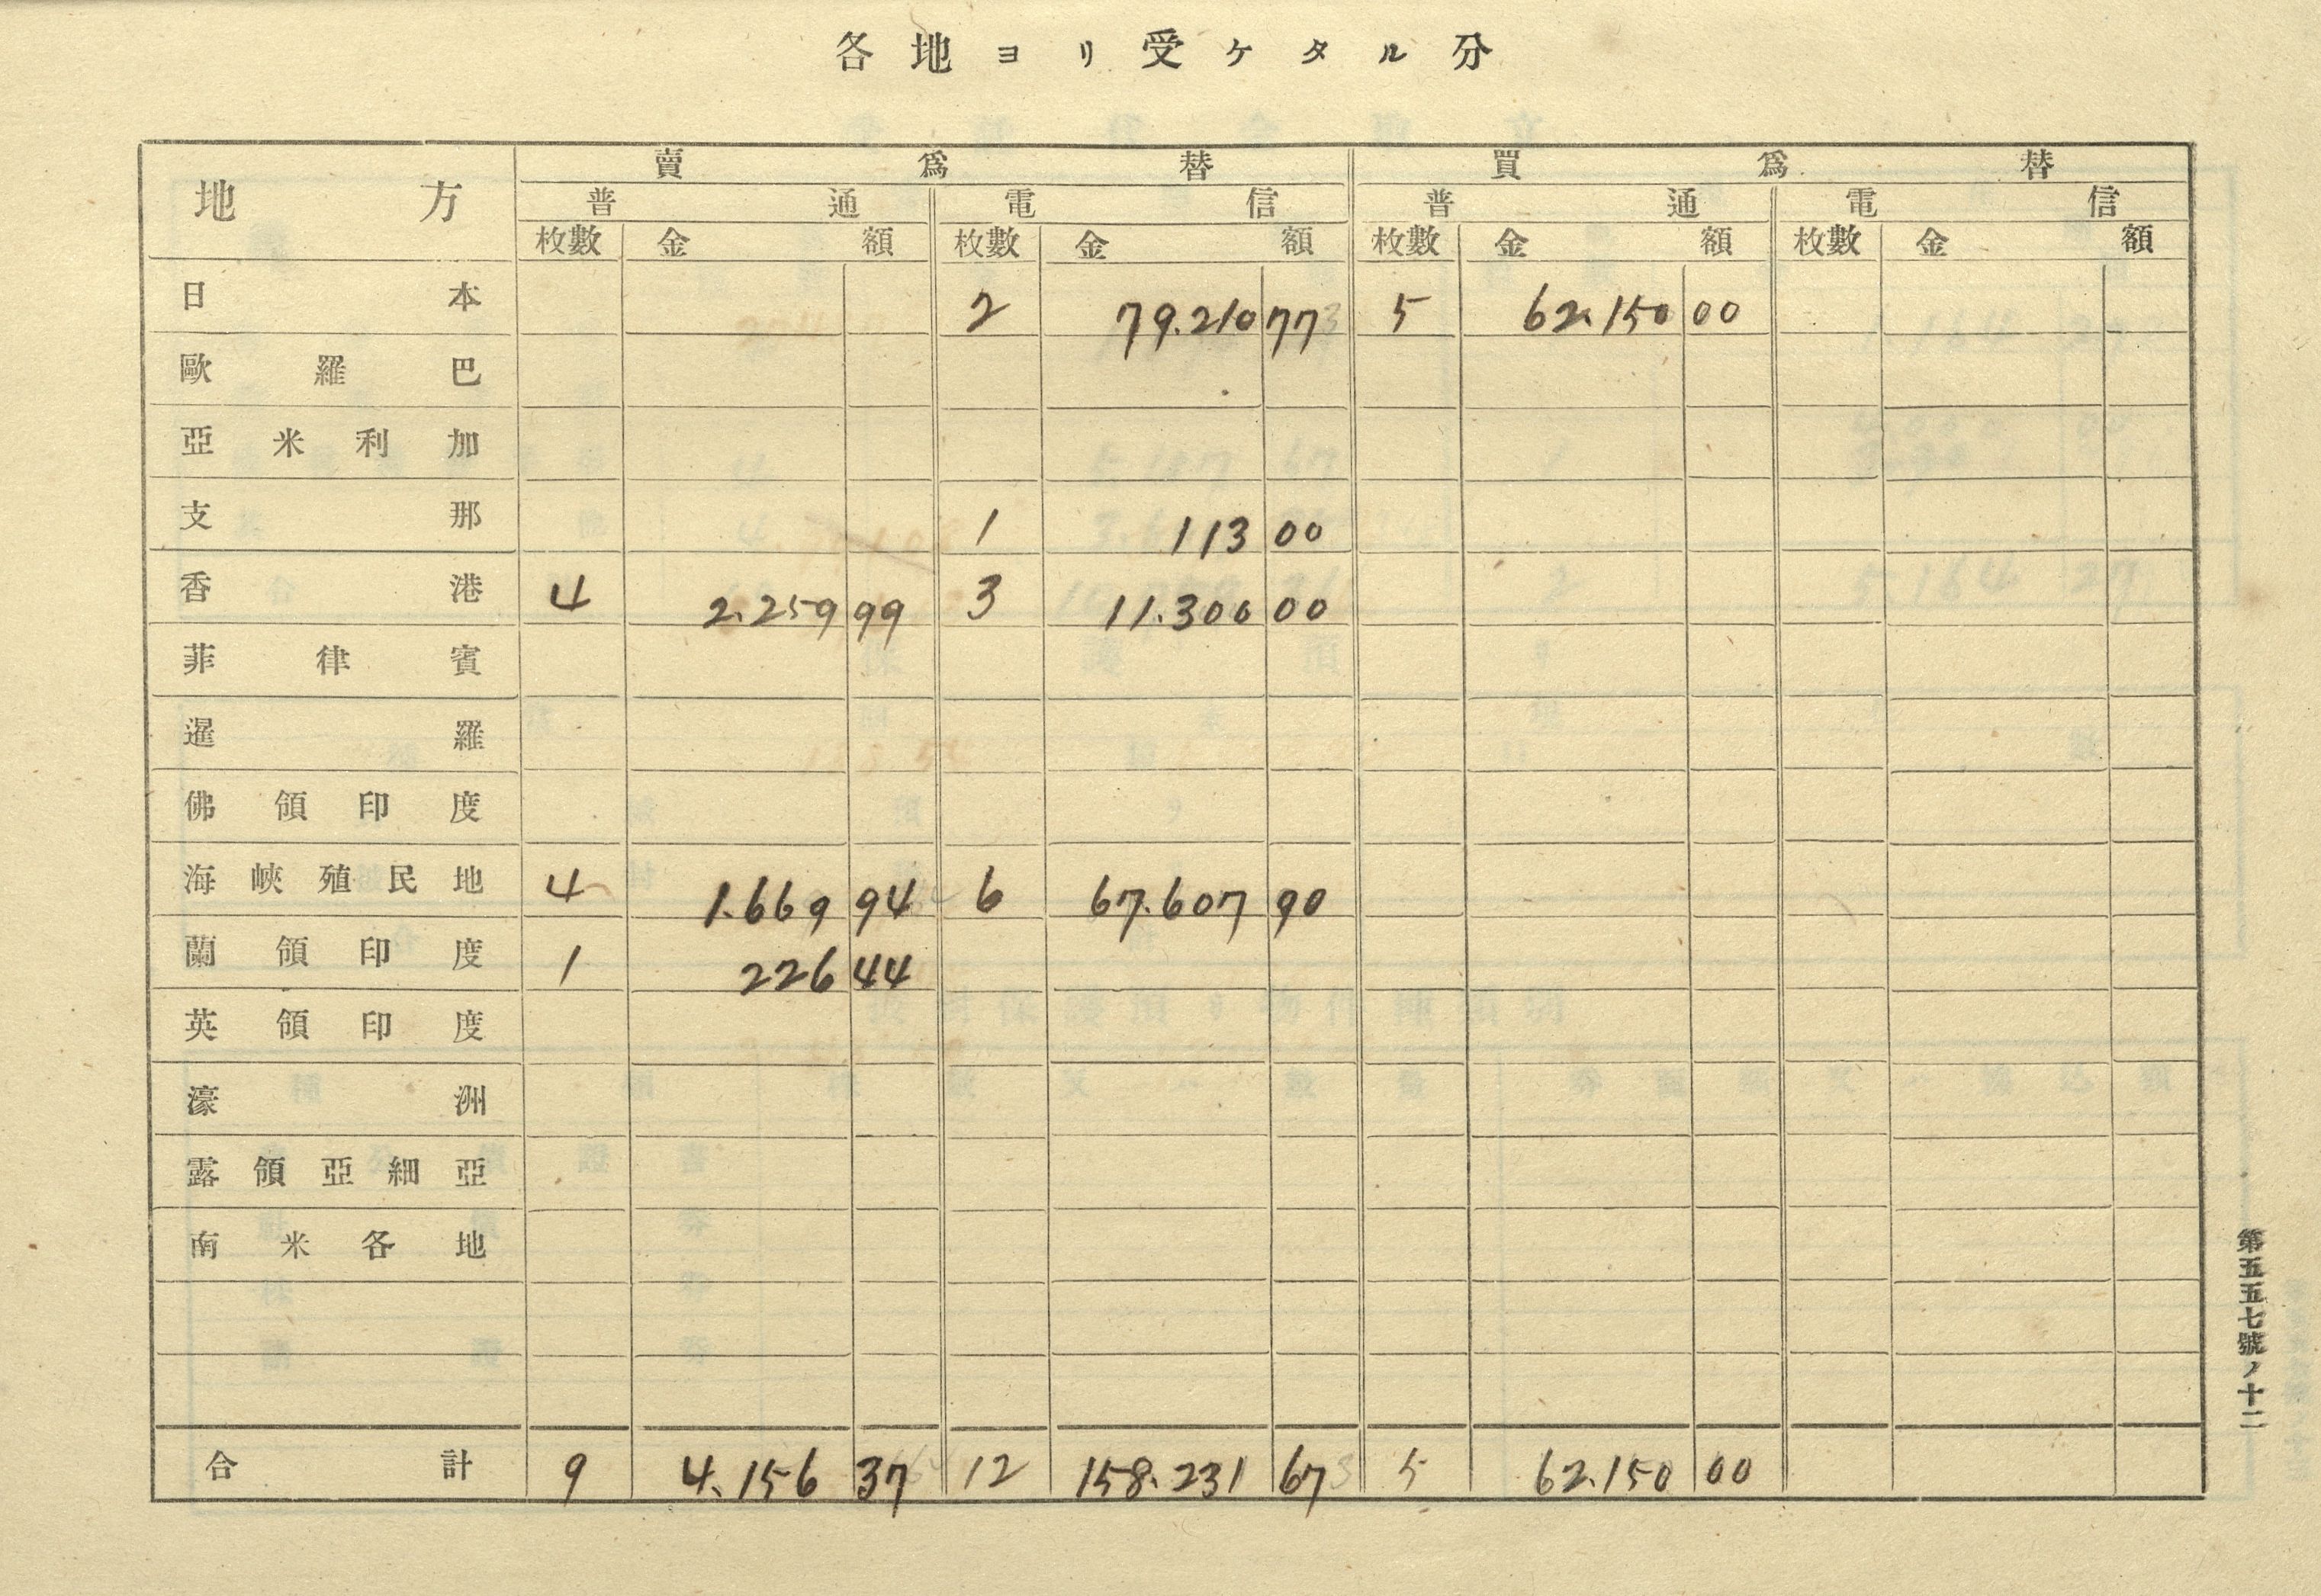 各地ヨリ受ケタル分
地方 賣爲替 買爲替
普通 電信 普通 電信
枚數 金額 枚數 金額 枚數 金額 枚數 金額
日本 2 79.210 77 5 62.150 00
歐羅巴
亞米利加
支那 1 113 00
香港 4 2.259 99 3 11.300 00
菲律賓
暹羅
佛領印度
海峽殖民地 4 1.669 94 6 67.607 90
蘭領印度 1 226 44
英領印度
濠洲
露領亞細亞
南米各地
合計 9 4.156 37 12 158.231 67 5 62.150 00
第五五七號ノ十二